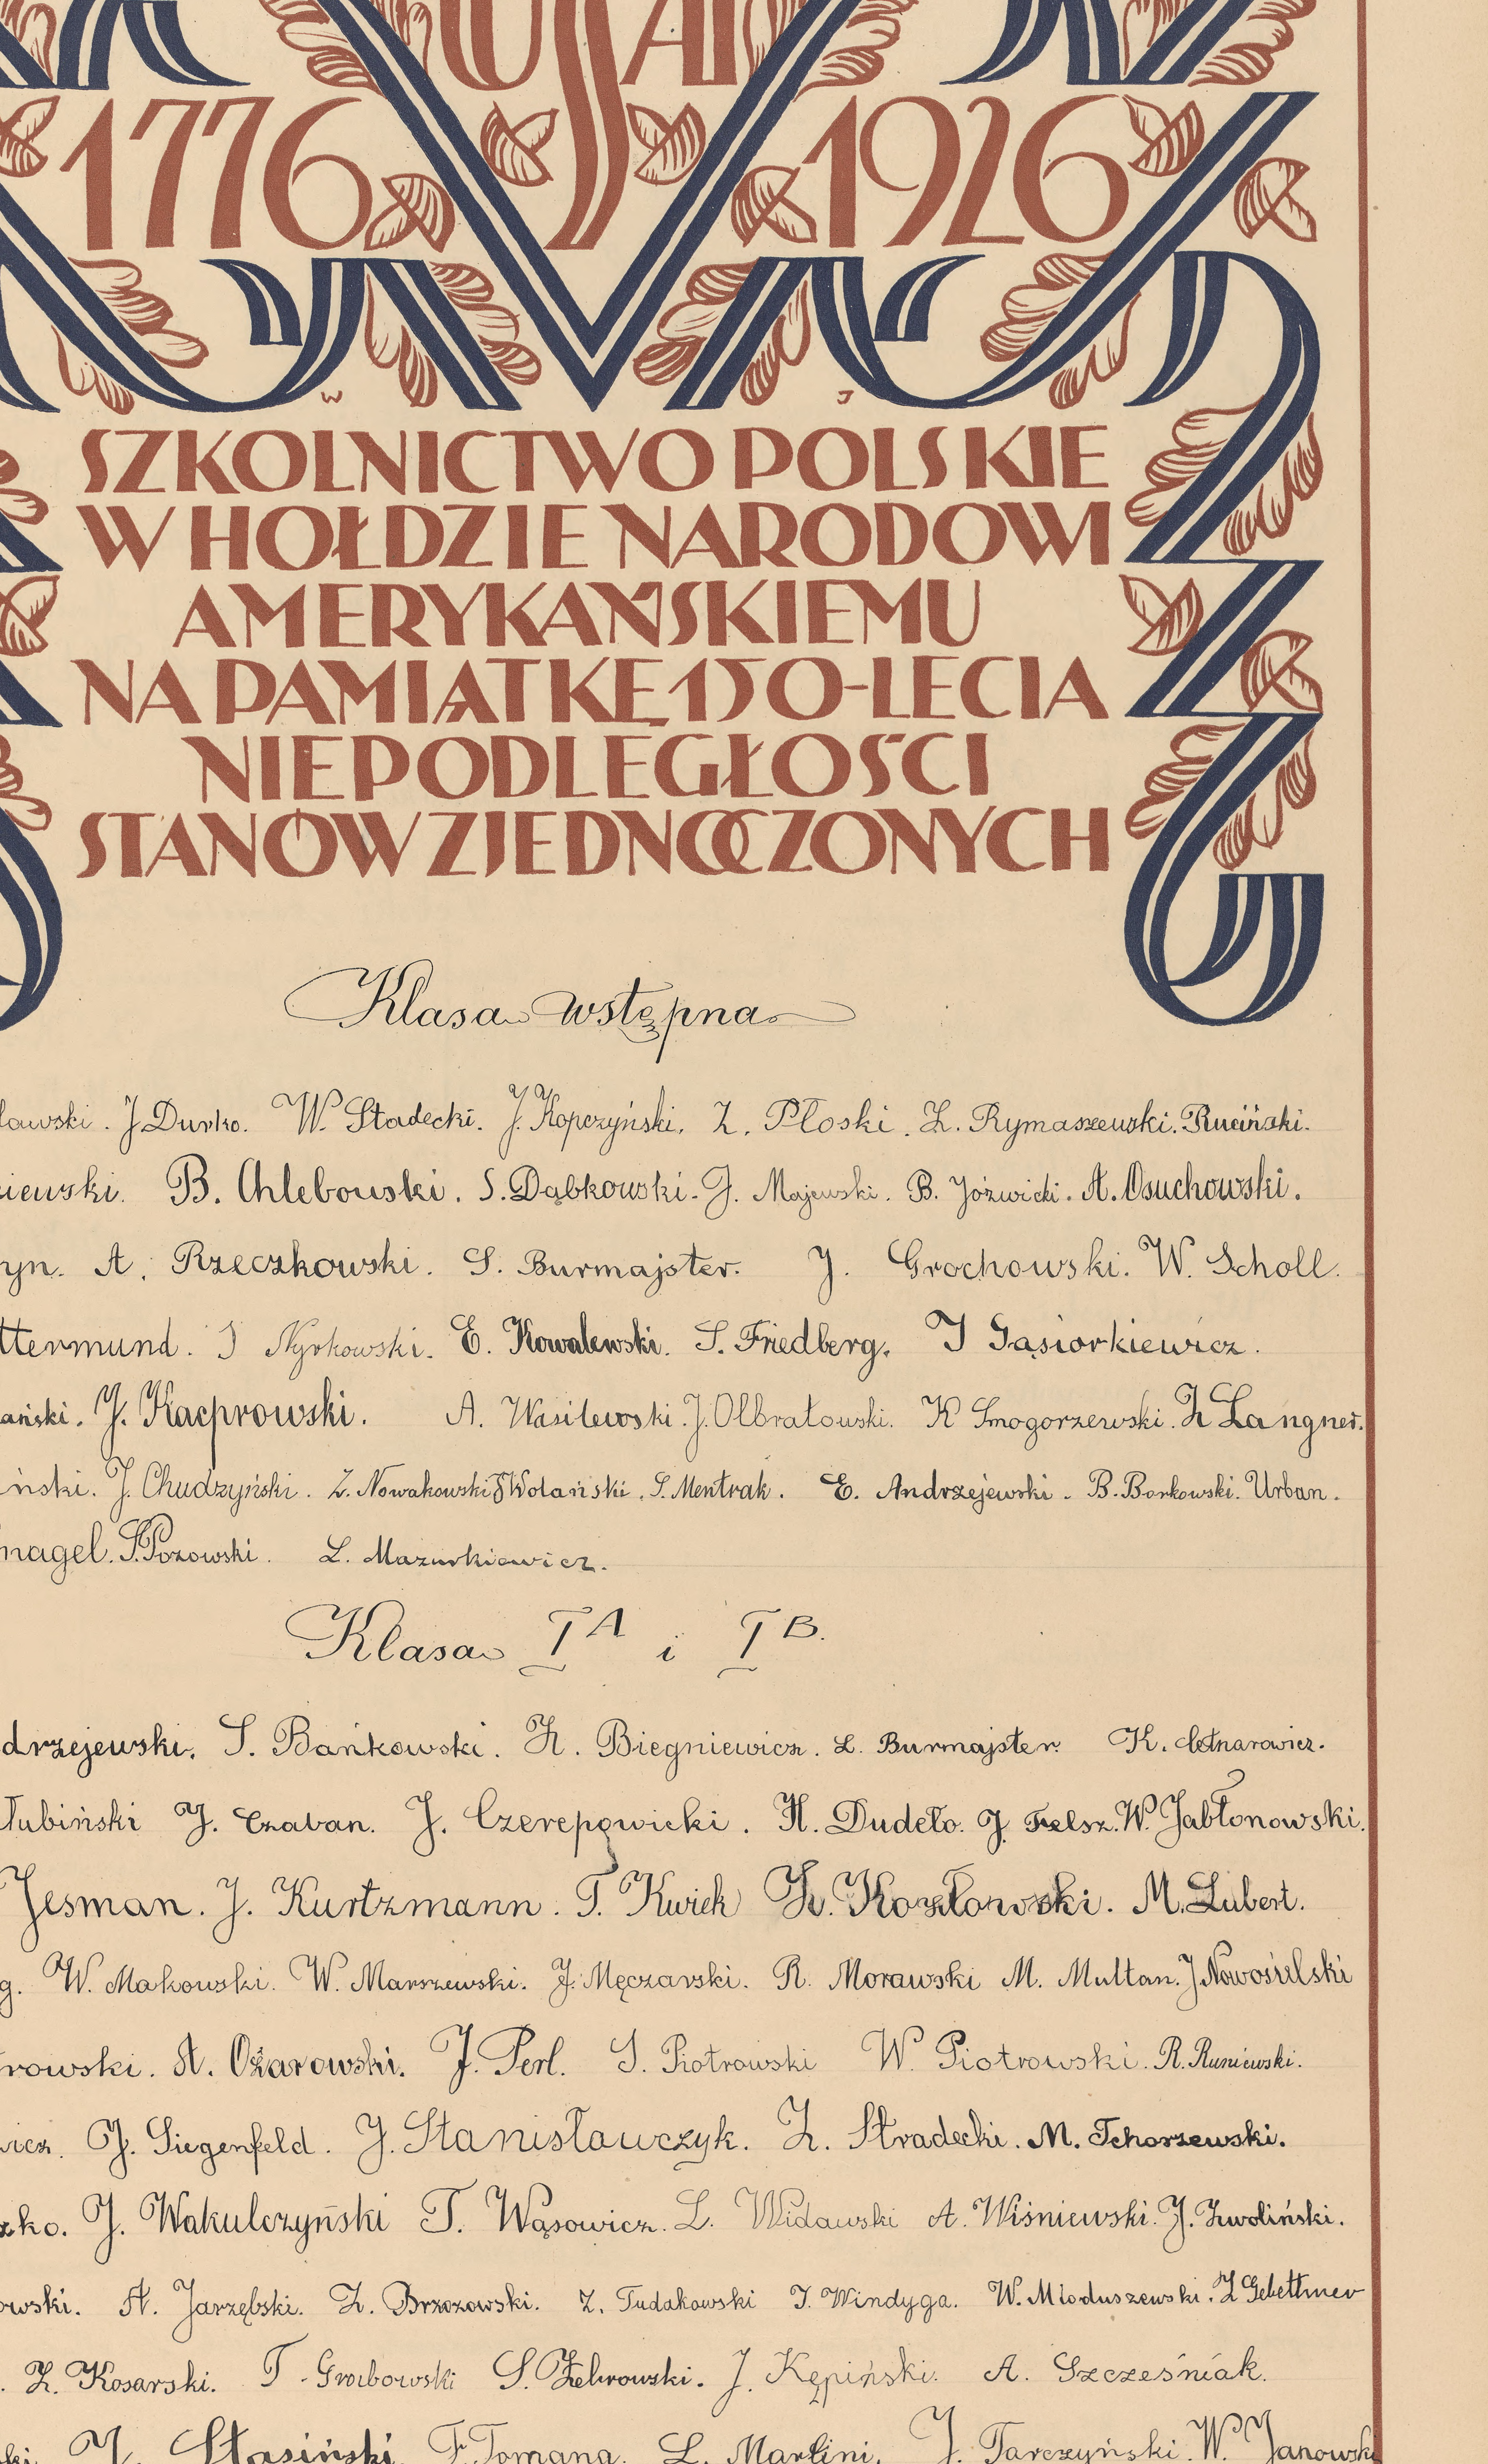 USA
1776 1926
W J
SZKOLNICTWO POLSKIE
W HOŁDZIE NARODOWI
AMERYKAŃSKIEMU
NA PAMIĄTKĘ 150-LECIA
NIEPODLEGŁOŚCI
STANÓW ZJEDNOCZONYCH
Klasa wstępna
lawski. J. Durko. W. Stadecki. J. Kopczyński. Z. Płoski. Z. Rymaszewski. Ruciński.
iewski. B. Chlebowski. S. Dąbkowski. J. Majewski. B. Jóźwicki. A. Osuchowski.
yn. A. Rzeczkowski. S. Burmajster. J. Grochowski. W. Scholl.
ttermund. J Nyrkowski. E. Kowalewski. S. Friedberg. J Gąsiorkiewicz.
ański. J. Kacprowski. A. Wasilewski. J. Olbratowski. K Smogorzewski. Z Langner.
iński. J. Chudzyński. Z. Nowakowski J Wolański. S. Mentrak. E. Andrzejewski. B. Borkowski. Urban.
nagel. S. Pozowski. L. Mazurkiewicz.
Klasa I A i I B.
drzejewski. S. Bańkowski. H. Biegniewicz. L. Burmajster. K. Cetnarowicz.
łubiński J. Czaban. J. Czerepowicki. H. Dudeło. J. Felsz. W. Jabłonowski.
Jesman. J. Kurtzmann. T. Kwiek Z. Kozłowski. M. Lubert.
g. W. Makowski. W. Marszewski. J. Męczarski. R. Morawski M. Multan. J Nowosielski
rowski. A. Ożarowski. J. Perl. S. Piotrowski W. Piotrowski. R. Runiewski.
wicz. J. Siegenfeld. J. Stanisławczyk. Z. Stradecki. M. Tchorzewski.
zko. J. Wakulczyński T. Wąsowicz. L. Widawski A. Wiśniewski. J. Zwoliński.
owski. A. Jarzębski. Z. Brzozowski. Z. Tudakowski T. Windyga. W. Mioduszewski. Z Gebettner
Z. Kosarski. T. Grabowski S. Żebrowski. J. Kępiński. A. Szcześniak.
ski. J. Stasiński. F. Tomana. L. Martini. J. Tarczyński. W. Janowski